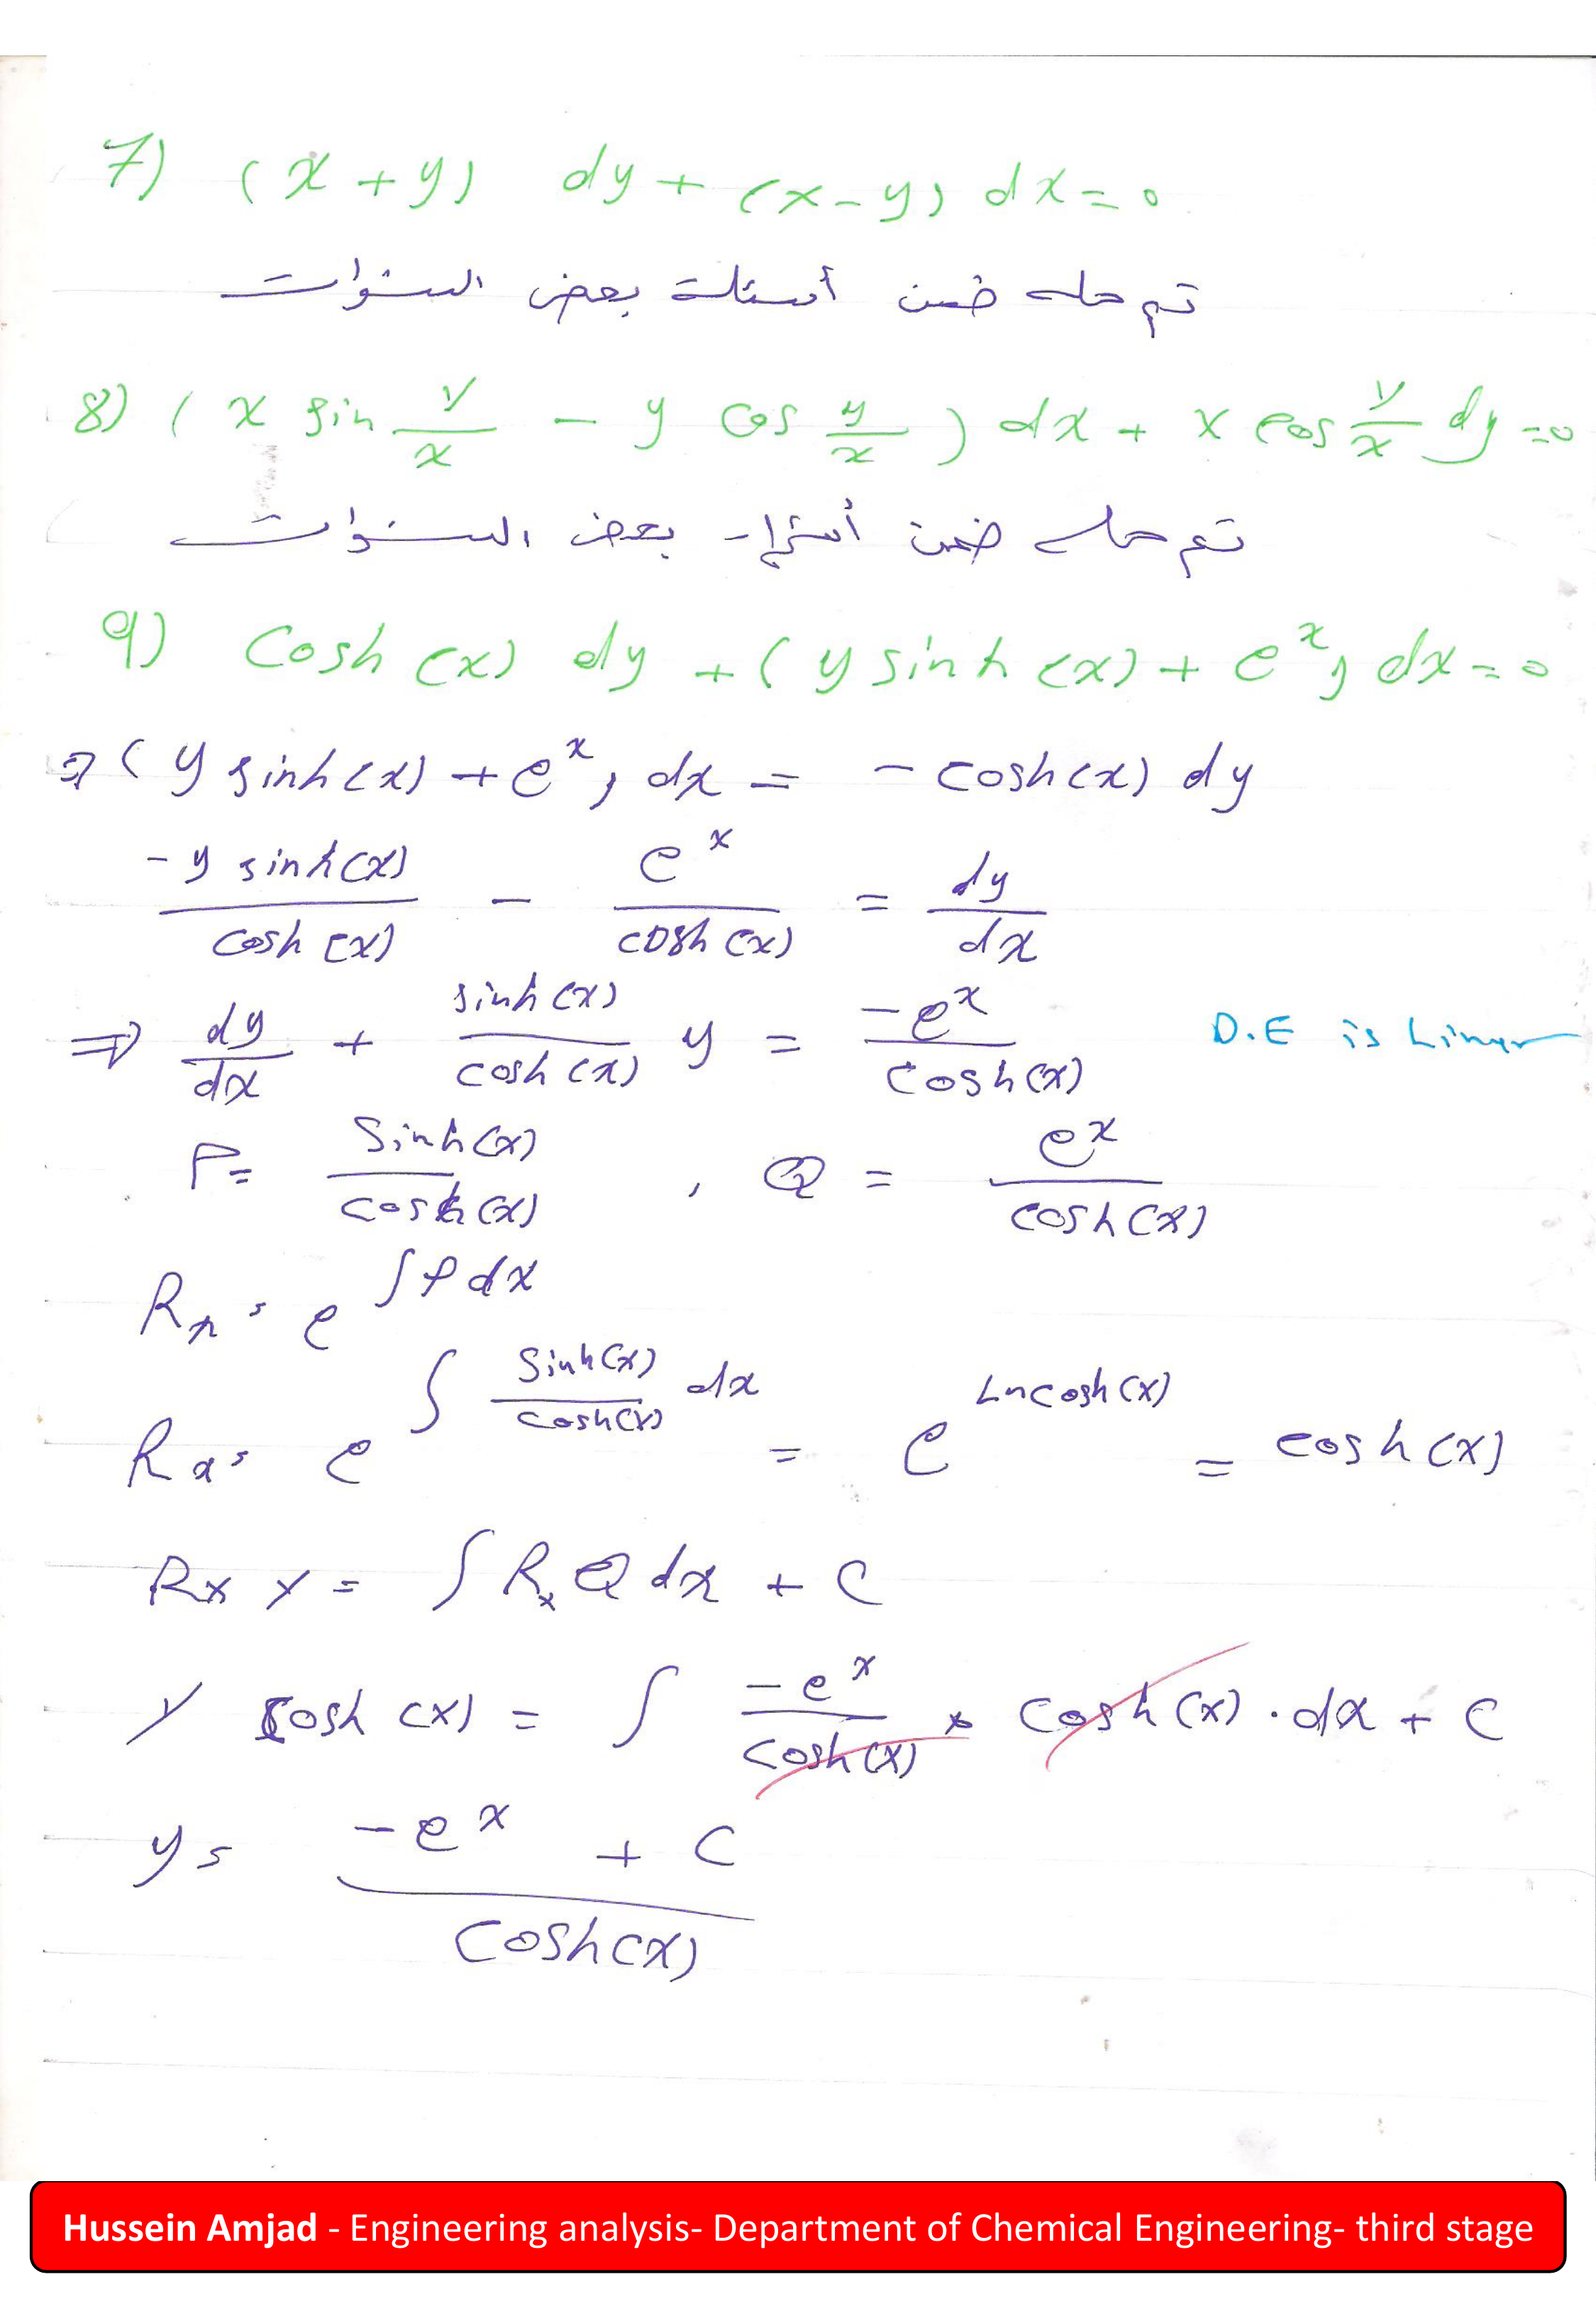 7) (x + y) dy + (x - y) dx = 0
تم حله ضمن أسئلة بعض السنوات
8) ( x sin y/x - y cos y/x ) dx + x cos y/x dy = 0
تم حله ضمن أسئلة بعض السنوات
9) Cosh (x) dy + ( y sinh (x) + e^x ) dx = 0
⇒ ( y sinh (x) + e^x ) dx = - cosh (x) dy
-y sinh (x) / cosh (x) - e^x / cosh (x) = dy/dx
⇒ dy/dx + sinh (x) / cosh (x) y = -e^x / cosh (x) D.E is Linear
P = Sinh (x) / cosh (x) , Q = e^x / cosh (x)
Rx = e^∫P dx
Rx = e^∫ Sinh (x) / cosh (x) dx = e^Ln cosh (x) = cosh (x)
Rx y = ∫ Rx Q dx + C
y cosh (x) = ∫ -e^x / cosh (x) * cosh (x) . dx + C
y = -e^x + C / cosh (x)
Hussein Amjad - Engineering analysis- Department of Chemical Engineering- third stage